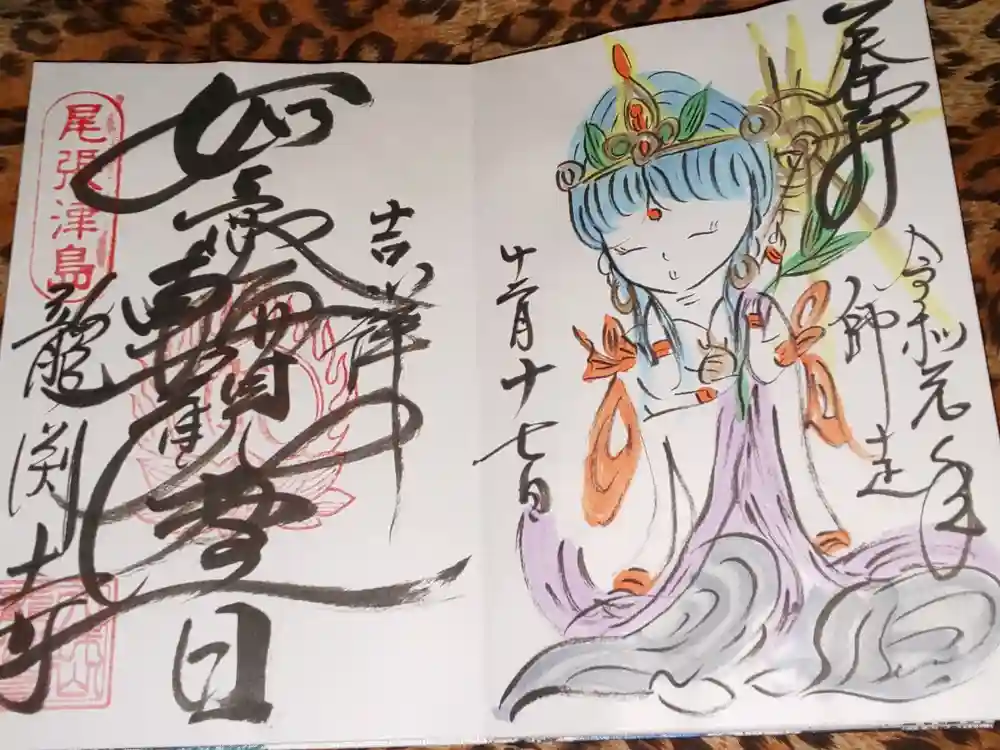 奉拝
令和元年
師走
十二月十七日
吉祥
如意輪觀 日
尾張津島
龍渕寺